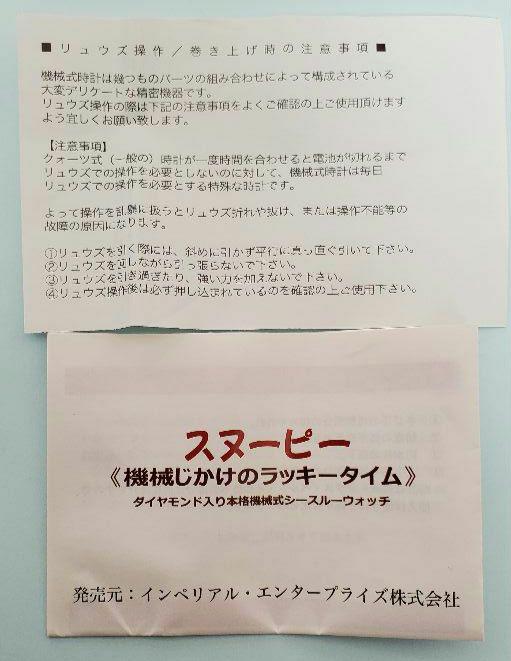 ■リュウズ操作／巻き上げ時の注意事項■
機械式時計は幾つものパーツの組み合わせによって構成されている
大変デリケートな精密機器です。
リュウズ操作の際は下記の注意事項をよくご確認の上ご使用頂けます
よう宜しくお願い致します。
【注意事項】
クォーツ式（一般の）時計が一度時間を合わせると電池が切れるまで
リュウズでの操作を必要としないのに対して、機械式時計は毎日
リュウズでの操作を必要とする特殊な時計です。
よって操作を乱暴に扱うとリュウズ折れや抜け、または操作不能等の
故障の原因になります。
①リュウズを引く際には、斜めに引かず平行に真っ直ぐ引いて下さい。
②リュウズを回しながら引っ張らないで下さい。
③リュウズを引き過ぎたり、強い力を加えないで下さい。
④リュウズ操作後は必ず押し込まれているのを確認の上ご使用下さい。
スヌーピー
《機械じかけのラッキータイム》
ダイヤモンド入り本格機械式シースルーウォッチ
発売元：インペリアル・エンタープライズ株式会社